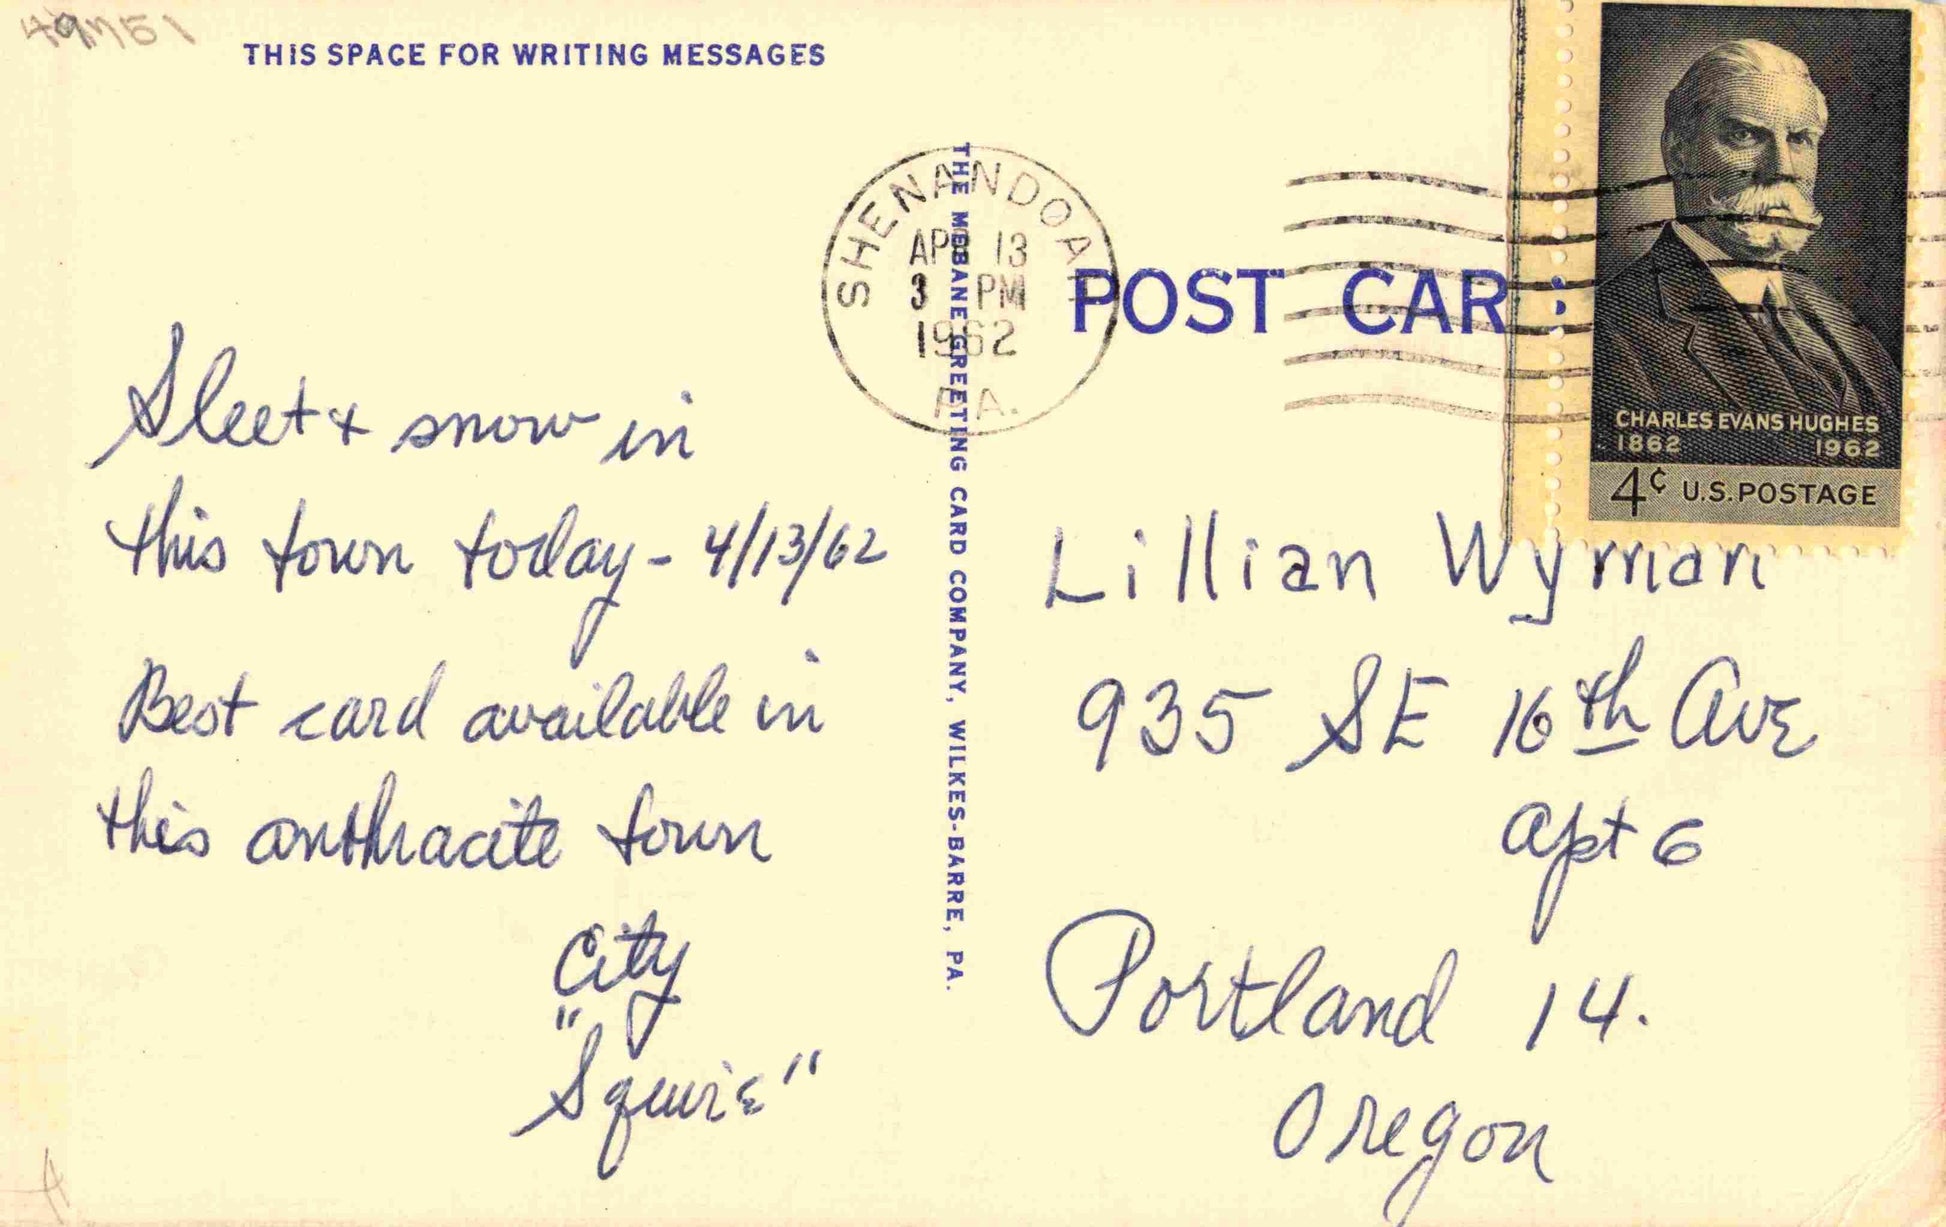 THIS SPACE FOR WRITING MESSAGES
Sleet & snow in
this town today - 4/13/62
Best card available in
this anthracite town
City
"Squire"
THE MEBANE GREETING CARD COMPANY, WILKES-BARRE, PA.
SHENANDOAH
APR 13
3 PM
1962
PA.
POST CAR
CHARLES EVANS HUGHES
1862 1962
4¢ U.S. POSTAGE
Lillian Wyman
935 SE 16th Ave
Apt 6
Portland 14.
Oregon